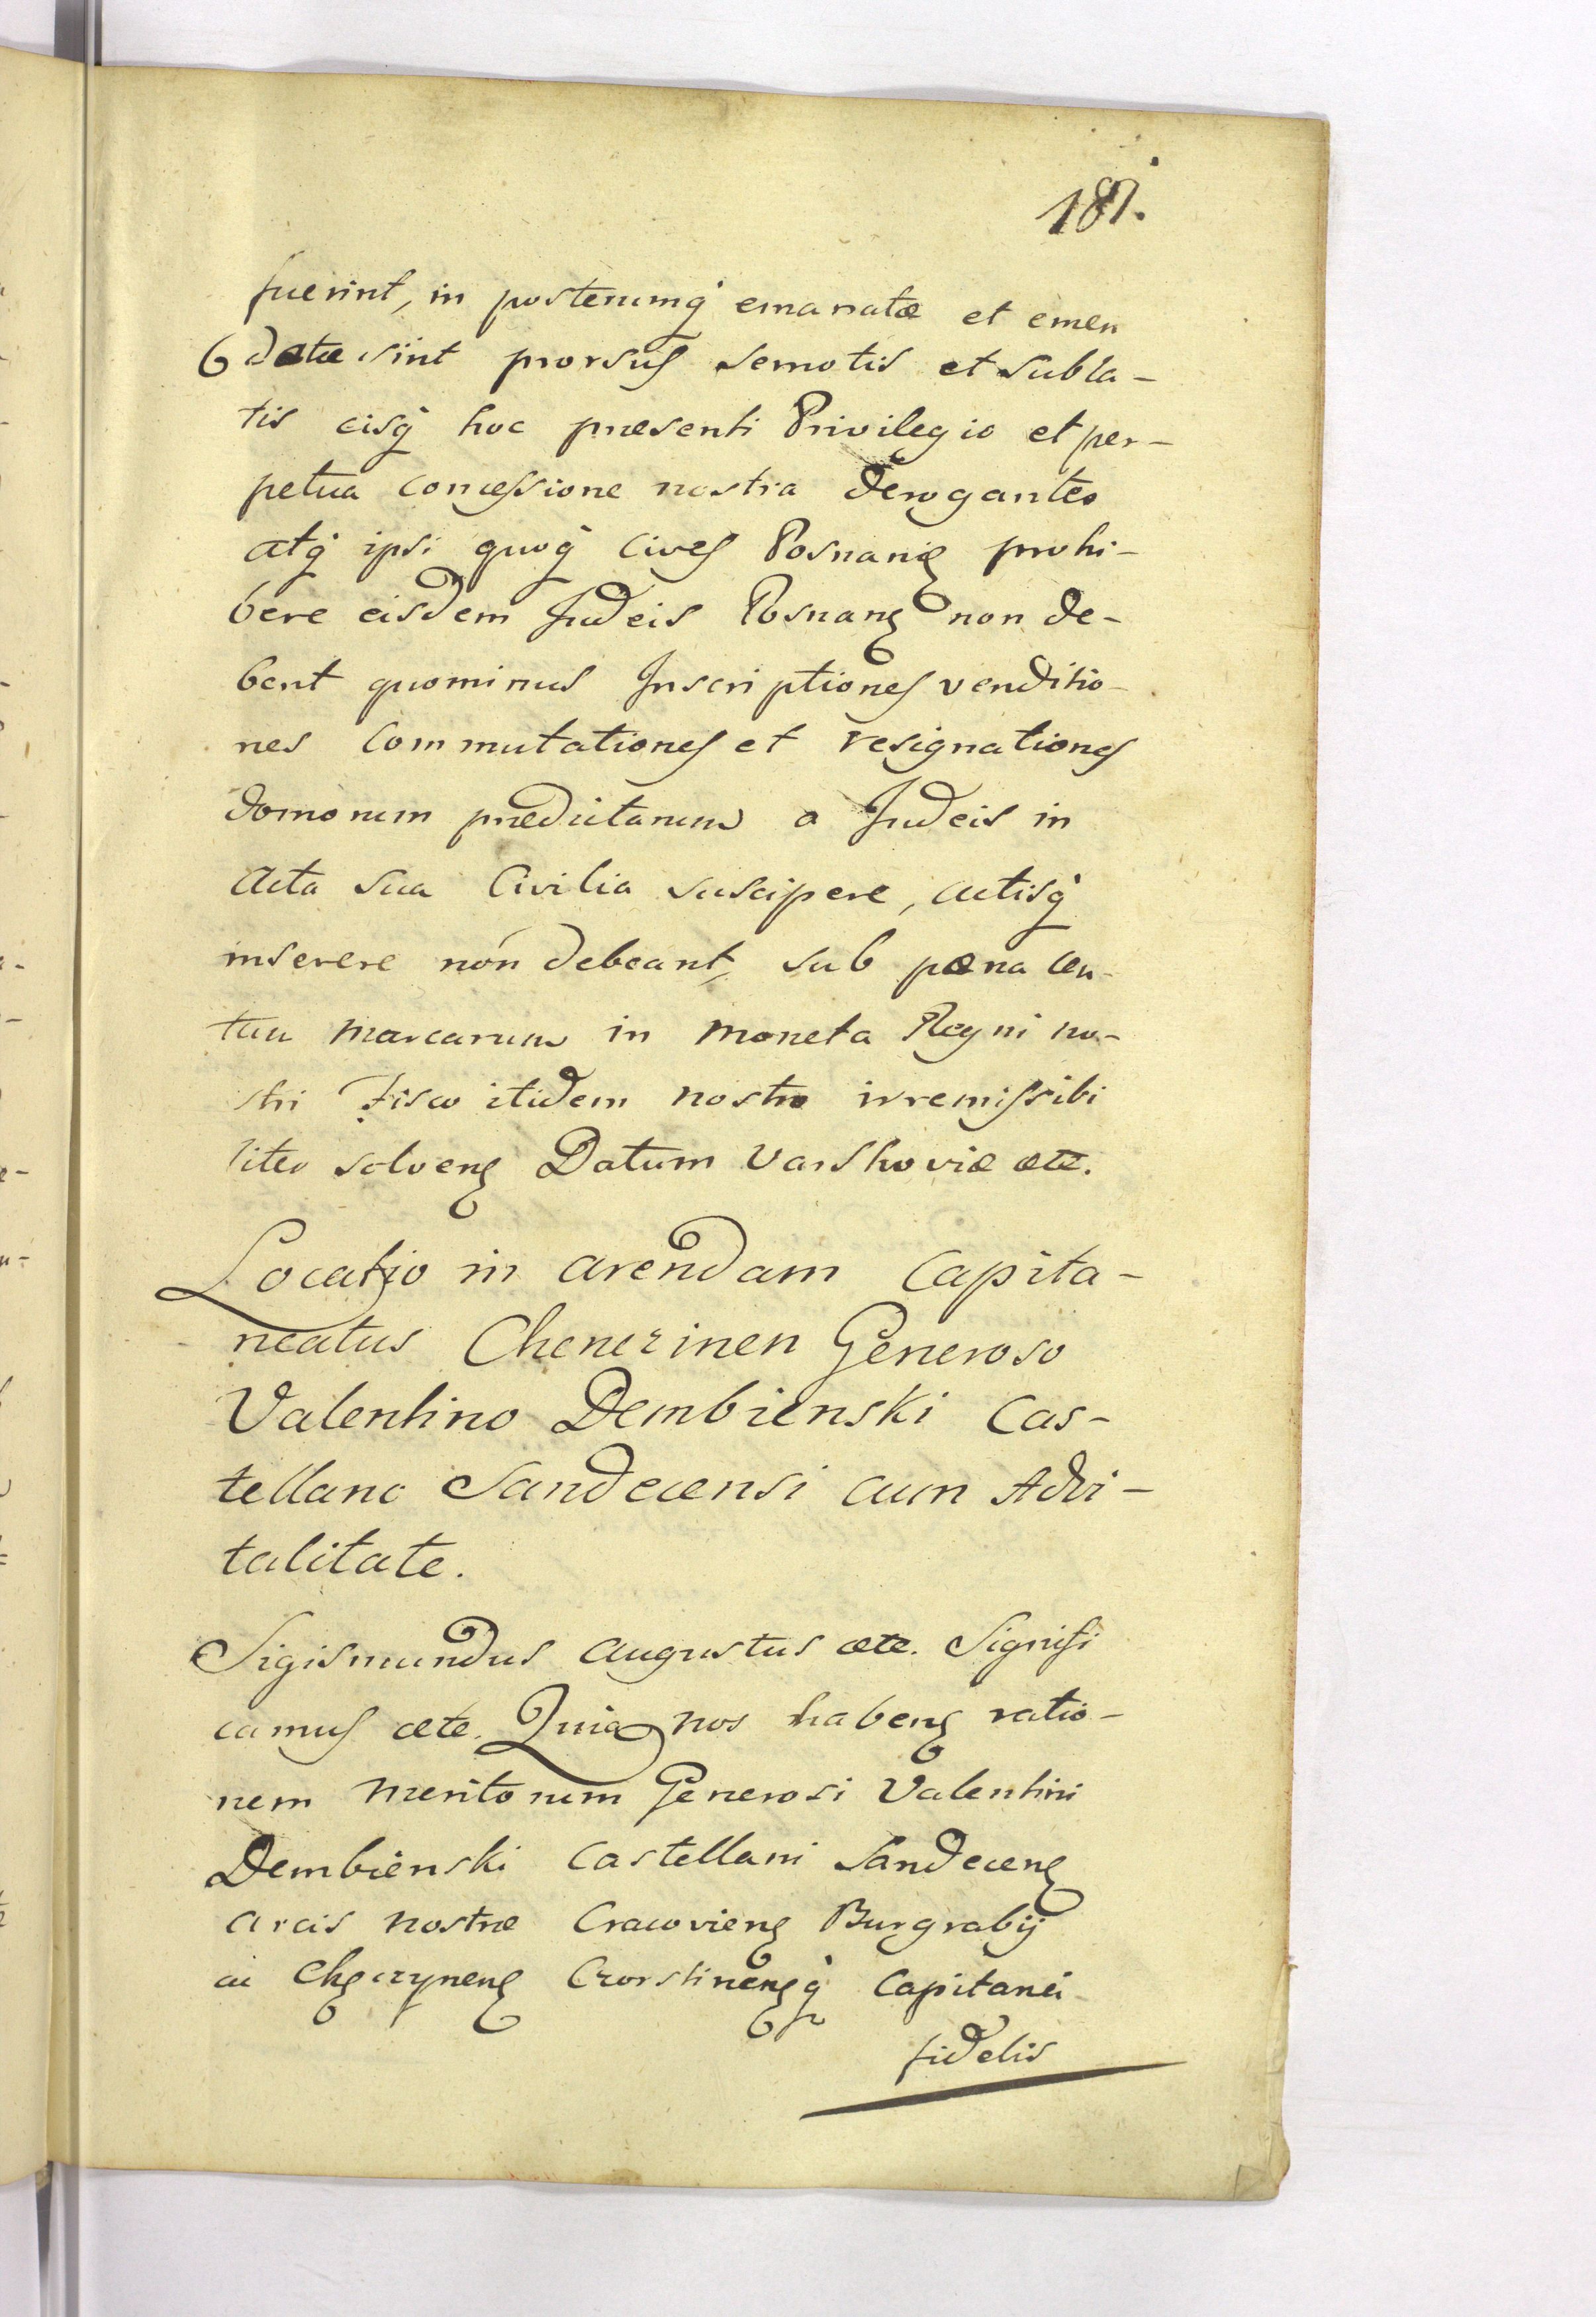 187.
fuerint, in posterumq́ emanatæ et emen
datæ sint prorsus semotis et subla-
tis eisq́ hoc præsenti Privilegio et per-
petua concessione nostra derogantes
atq́ ipsi quoq́ Cives Posnanię prohi-
bere eisdem Judeis Posnanę non de-
bent quominus Inscriptiones venditio-
nes Commutationes et resignationes
domorum prædictarum a Judeis in
Acta sua Civilia suscipere, actisq́
inserere non debeant, sub pæna cen-
tum marcarum in moneta Regni no-
stri Fisco itidem nostro irremissibi
liter solvenę Datum Varshoviæ etc.
Locatio in arendam Capita-
neatus Checzinen Generoso
Valentino Dembienski Cas-
tellano Sandecensi cum Advi-
talitate.
Sigismundus Augustus etc. Signifi
camus etc. Quia nos habenę ratio-
nem meritorum Generosi Valentini
Dembienski Castellani Sandecenę
Arcis nostræ Cracovienę Burgrabij
ac Chęczynenę Crorstinenęq́ Capitanei
fidelis